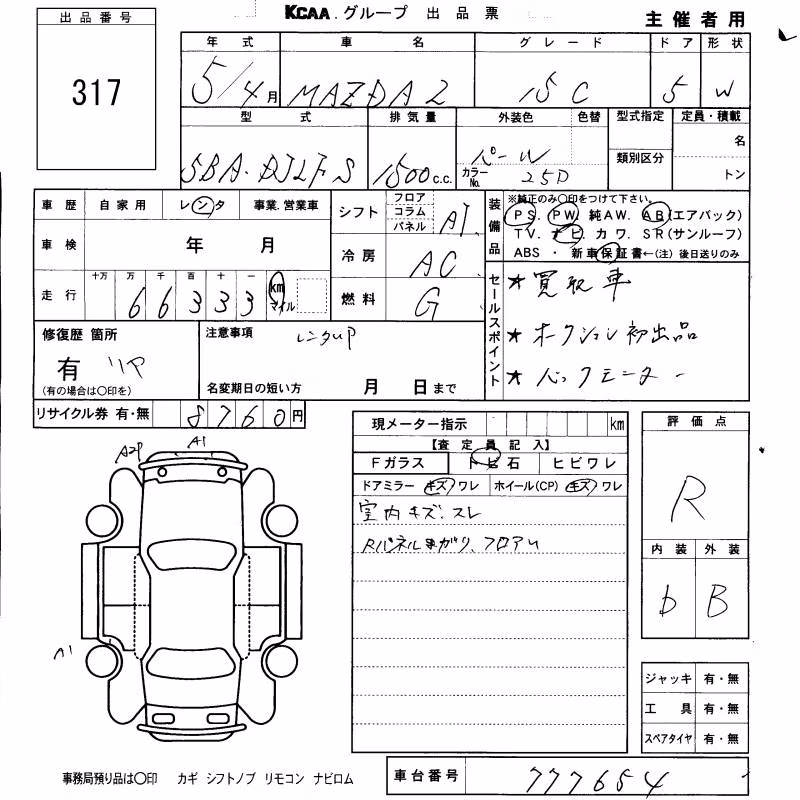 出品番号
317
KCAA グループ 出品票
主催者用
年式 車名 グレード ドア 形状
5/4月 MAZDA2 15C 5 W
型式 排気量 外装色 色替 型式指定 定員・積載
5BA-DJLFS 1500c.c. パールW カラーNo. 25D 類別区分 名
トン
車歴 自家用 レンタ 事業.営業車
シフト フロア コラム パネル AT
車検 年 月
冷房 AC
走行 十万 万 千 百 十 一 66333 km マイル
燃料 G
装備品 ※純正のみ〇印をつけて下さい。
PS. PW. 純AW. AB(エアバック)
TV. ナビ. カワ. SR(サンルーフ)
ABS ・ 新車保証書←(注)後日送りのみ
セールスポイント
★買取車
★オークション初出品
★バックモニター
修復歴 箇所
有 リヤ
(有の場合は〇印を)
注意事項 レンタUP
名変期日の短い方 月 日まで
リサイクル券 有・無 8760円
現メーター指示 km
【査定員記入】
Fガラス トビ石 ヒビワレ
ドアミラー キズ ワレ ホイール(CP) キズ ワレ
室内キズ.スレ
Rパネルまがり、フロアU
評価点
R
内装 外装
b B
A2P A1
A1
ジャッキ 有・無
工具 有・無
スペアタイヤ 有・無
事務局預り品は〇印 カギ シフトノブ リモコン ナビロム
車台番号 777654